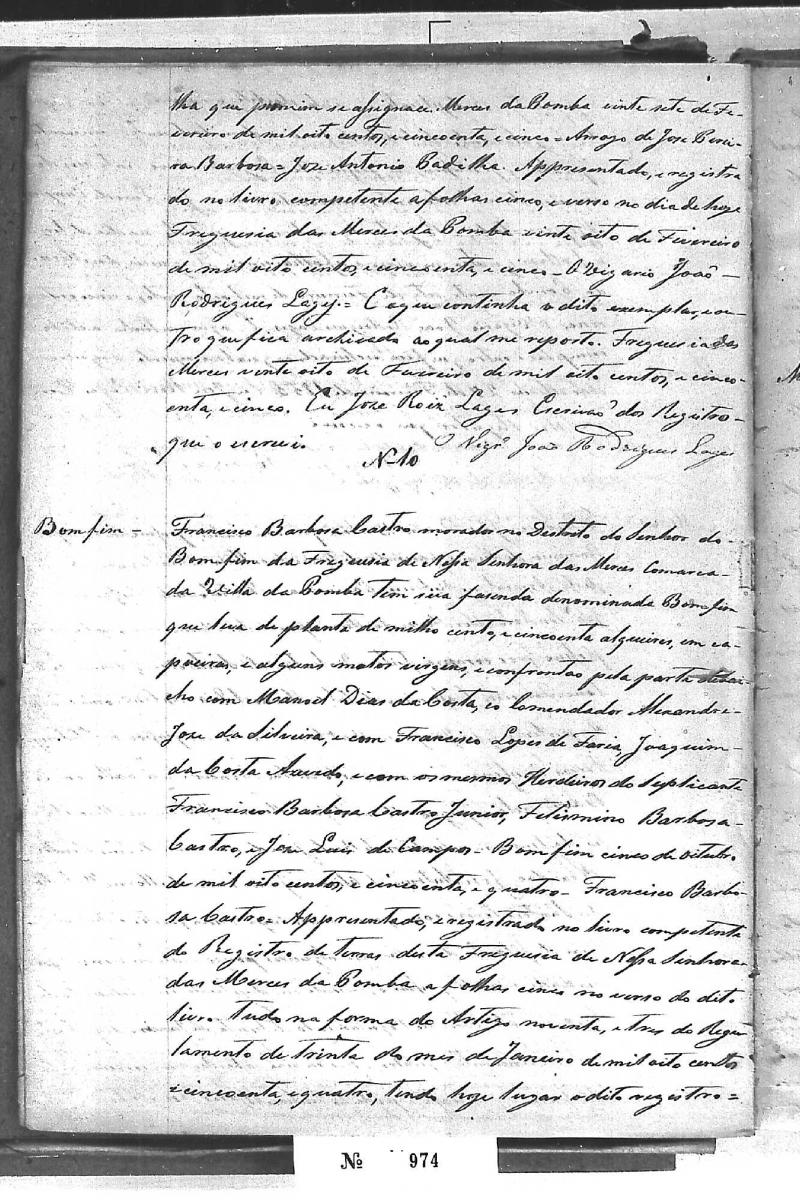 lha que pormim se assignace. Merces da Pomba vinte sete de Fe-
vereiro de mil oito centos, e cincoenta, e cinco = Arrogo de Jose Perei-
ra Barbosa = Joze Antonio Padilha. Appresentado, e registra
do no livro competente a folhas cinco, e verso no dia de hoje
Freguesia das Merces da Pomba vinte oito de Fivereiro
de mil oito centos, e cincoenta, e cinco - O Vigario João -
Rodrigues Lages. = E o que continha o dito exemplar, e ou-
tro que fica archivado ao qual me reporto. Freguesia das
Merces vinte oito de Fevereiro de mil oito centos, e cinco-
enta, e cinco. Eu Joze Roiz Lages Escrivaõ dos Registro-
que o escrevi. O Vigrº João Rodrigues Lages
N-10
Bom fim - Francisco Barbosa Castro morador no Destrito do Senhor do-
Bom fim da Freguesia de Nossa Senhora das Merces Comarca-
da Villa da Pomba tem sua fasenda denominada Bom fim
que leva de planta de milho cento, e cincoenta alqueires, em ca-
poeiras, e alguns matos virgens, e confrontaõ pela parte
cho com Manoel Dias da Costa, e o Comendador Alexandre-
Joze da Silveira, e com Francisco Lopes de Faria, Joaquim-
da Costa Azevedo, e com os mesmos Herdeiros do Suplicante
Francisco Barbosa Castro Junior, Felismino Barbosa-
Castro, e Joze Luis de Campos - Bom fim cinco de Oitubro
de mil oito centos, e cincoenta, e quatro - Francisco Barbo-
sa Castro = Appresentado, e registrado no livro competente
do Registro de terras desta Freguesia de Nossa Senhora-
das Merces da Pomba a folhas cinco no verso do dito
livro. Tudo na forma do Artigo noventa, e tres do Regu-
lamento de trinta do mes de Janeiro de mil oito centos
e cincoenta, e quatro, tendo hoje lugar o dito registro =
Nº 974